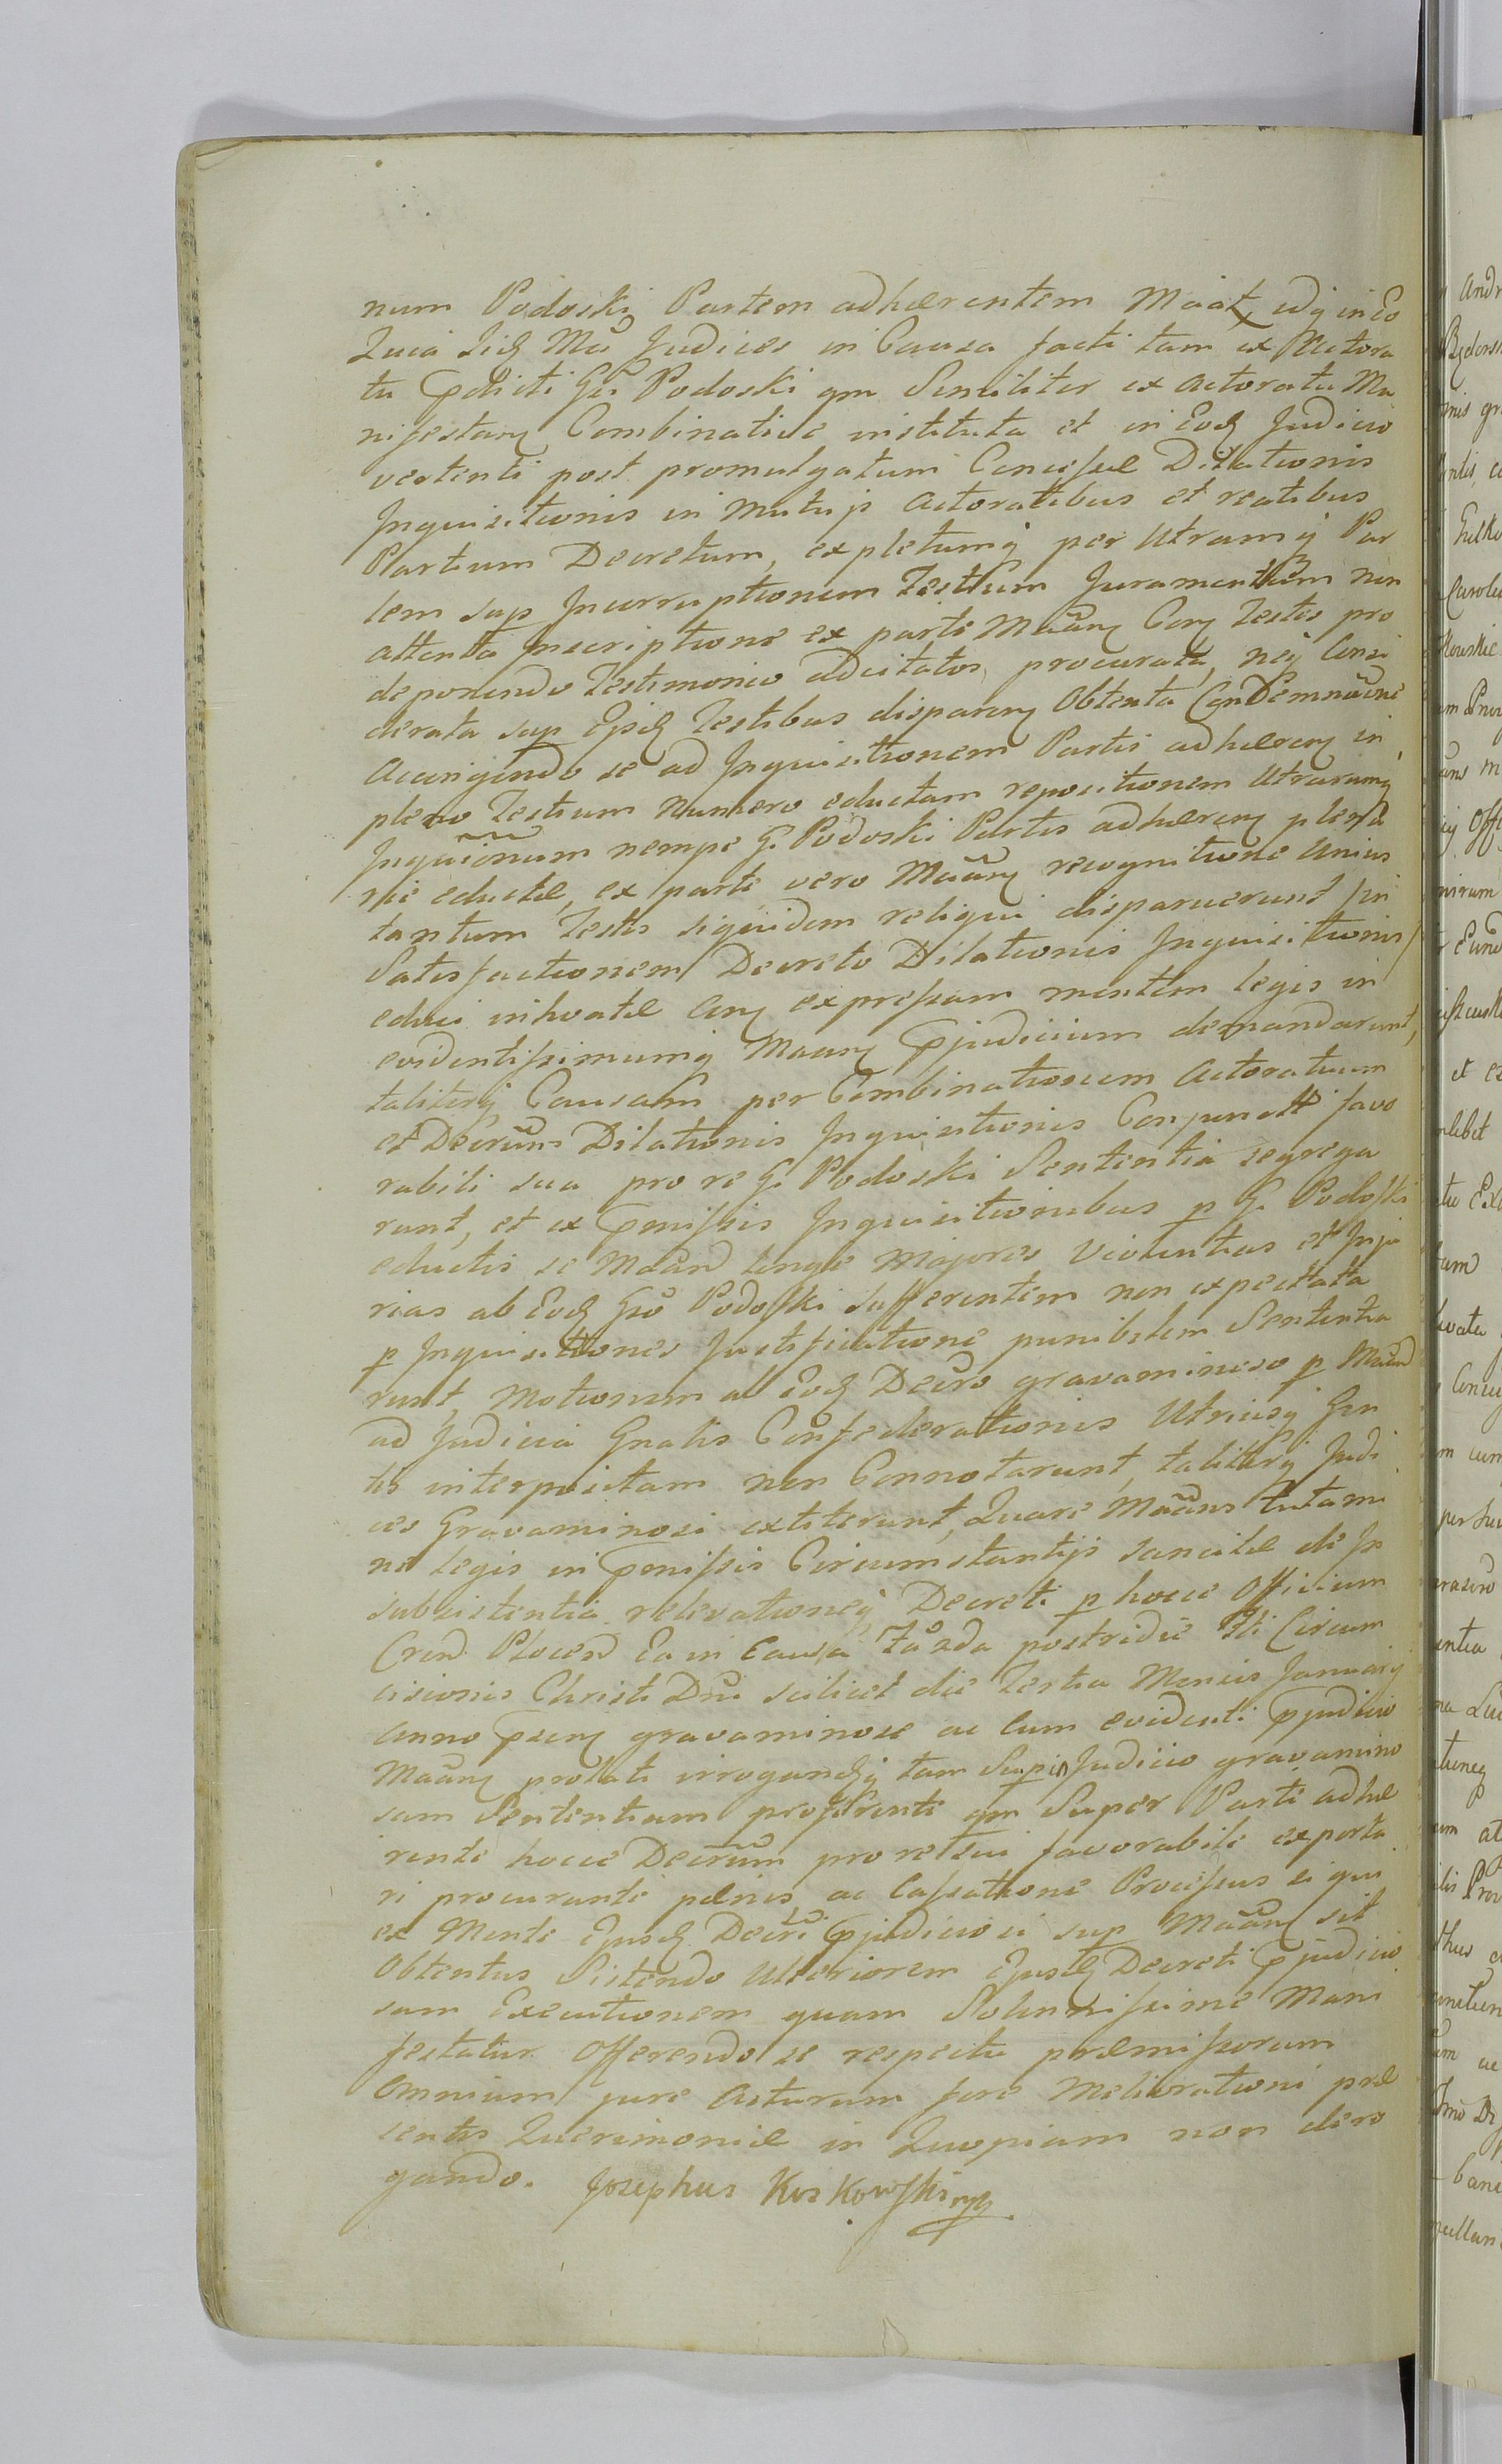 num Podoski Partem adhærentem Māat, idq in Eo
Quia Iid Mā Judices in Causa facti tam ex Actora
tu pdicti Gsi Podoski qm Similiter ex actoratu Ma
nifestan Combinative instituta et in Eod Judicio
vertenti post promulgatum Concessæ Dilationis
Inquisitionis in Mutuis actoratibus et reatibus
Partium Decretum, expletumq per Utramq Par
tem sup Incorruptionem Testium Juramentum non
attenta Inscriptione ex parte Māan Con Testes pro
deponendo Testimonio adcitatos procurata, neq Consi
derata sup Eosd Testibus disparen Obtenta Condemnāone
accingendo se ad Inquisitionem Partis adhæren in
pleno Testium Numero eductam repositionem Utrarumq
Inquiōnum nempe G. Podoski Partis adhæren plena
rie eductæ, ex parte vero Māan recognitione Unius
tantum Testis siquidem reliqui disparuerunt in
Satisfactionem Decreto Dilationis Inquisitionis
educi inhvatæ Con expressam mentem legis in
evidentissimumq Maan pjudicium demandarunt,
taliterq Causam per Combinationem Actoratuum
et Decrūm Dilationis Inquisitionis Conjunctt favo
rabili sua pro re G. Podoski Sententia segrega
runt, et ex pmissis Inquisitionibus p G. Podoski
eductis se Māand longe Majores Violentias et Inju
rias ab Eod Gso Podoski Sufferentem non expectata
p Inquisitiones Justificatione punibilem Sententia
runt, Motionem ab Eod Decro gravaminoso p Māand
ad Judicia Gnalis Confederationis Utriusq Gen
tis interpositam non Connotarunt, taliterq Judi
ces Gravaminosi extiterunt, Quare Māans tutami
ne legis in pmissis Circumstantijs sancitæ de In
subsistentia relevationeq Decreti p hocce Officium
Cren Plocen Ea in Causa postridie sti Circum
cisionis Christi Dni scilicet die Tertia Mensis Januarij
Anno psen gravaminose ac Cum evidenti pjudicio
Māan prolati irrogandq tam Supis Judicio gravamino
sam Sententiam proferenti qm Super Parte adhæ
rente hocce Decrūm pro re sui favorabile exporta
ri procuranti pœnis, ac Cassatione Processus si qui
ex Mente Ejusd Decri pjudiciosi sup Māan sit
Obtentus Sistendo Ulteriorem Ejusd Decreti pjudicio
sam Executionem quam Solennissime Mani
festatur. Offerendo se respectu præmissorum
Omnium jure Acturum fore Meliorationi præ
sentis Querimoniæ in Quopiam non dero
gando. Josephus Koskowski mp